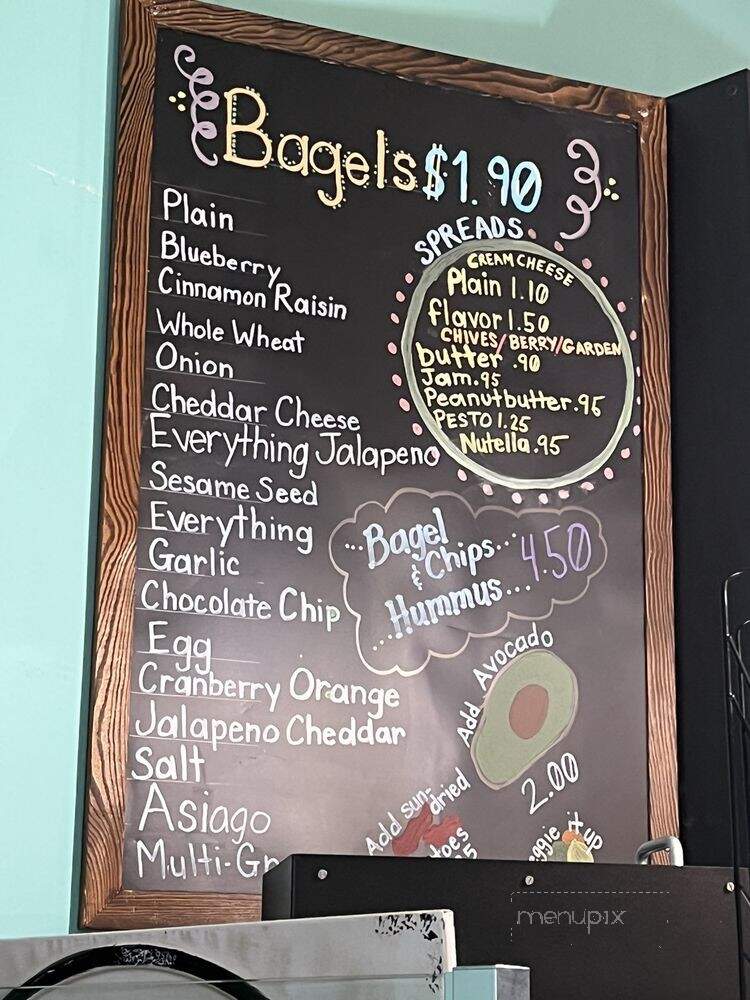 Bagels $1.90
Plain
Blueberry
Cinnamon Raisin
Whole Wheat
Onion
Cheddar Cheese
Everything Jalapeno
Sesame Seed
Everything
Garlic
Chocolate Chip
Egg
Cranberry Orange
Jalapeno Cheddar
Salt
Asiago
Multi-Gr
SPREADS
CREAM CHEESE
Plain 1.10
flavor 1.50
CHIVES/BERRY/GARDEN
butter .90
Jam .95
Peanutbutter .95
PESTO 1.25
Nutella .95
...Bagel
& Chips...
...Hummus... 4.50
Add Avocado
2.00
Add sun-
dried
toes
eggie it up
menupix